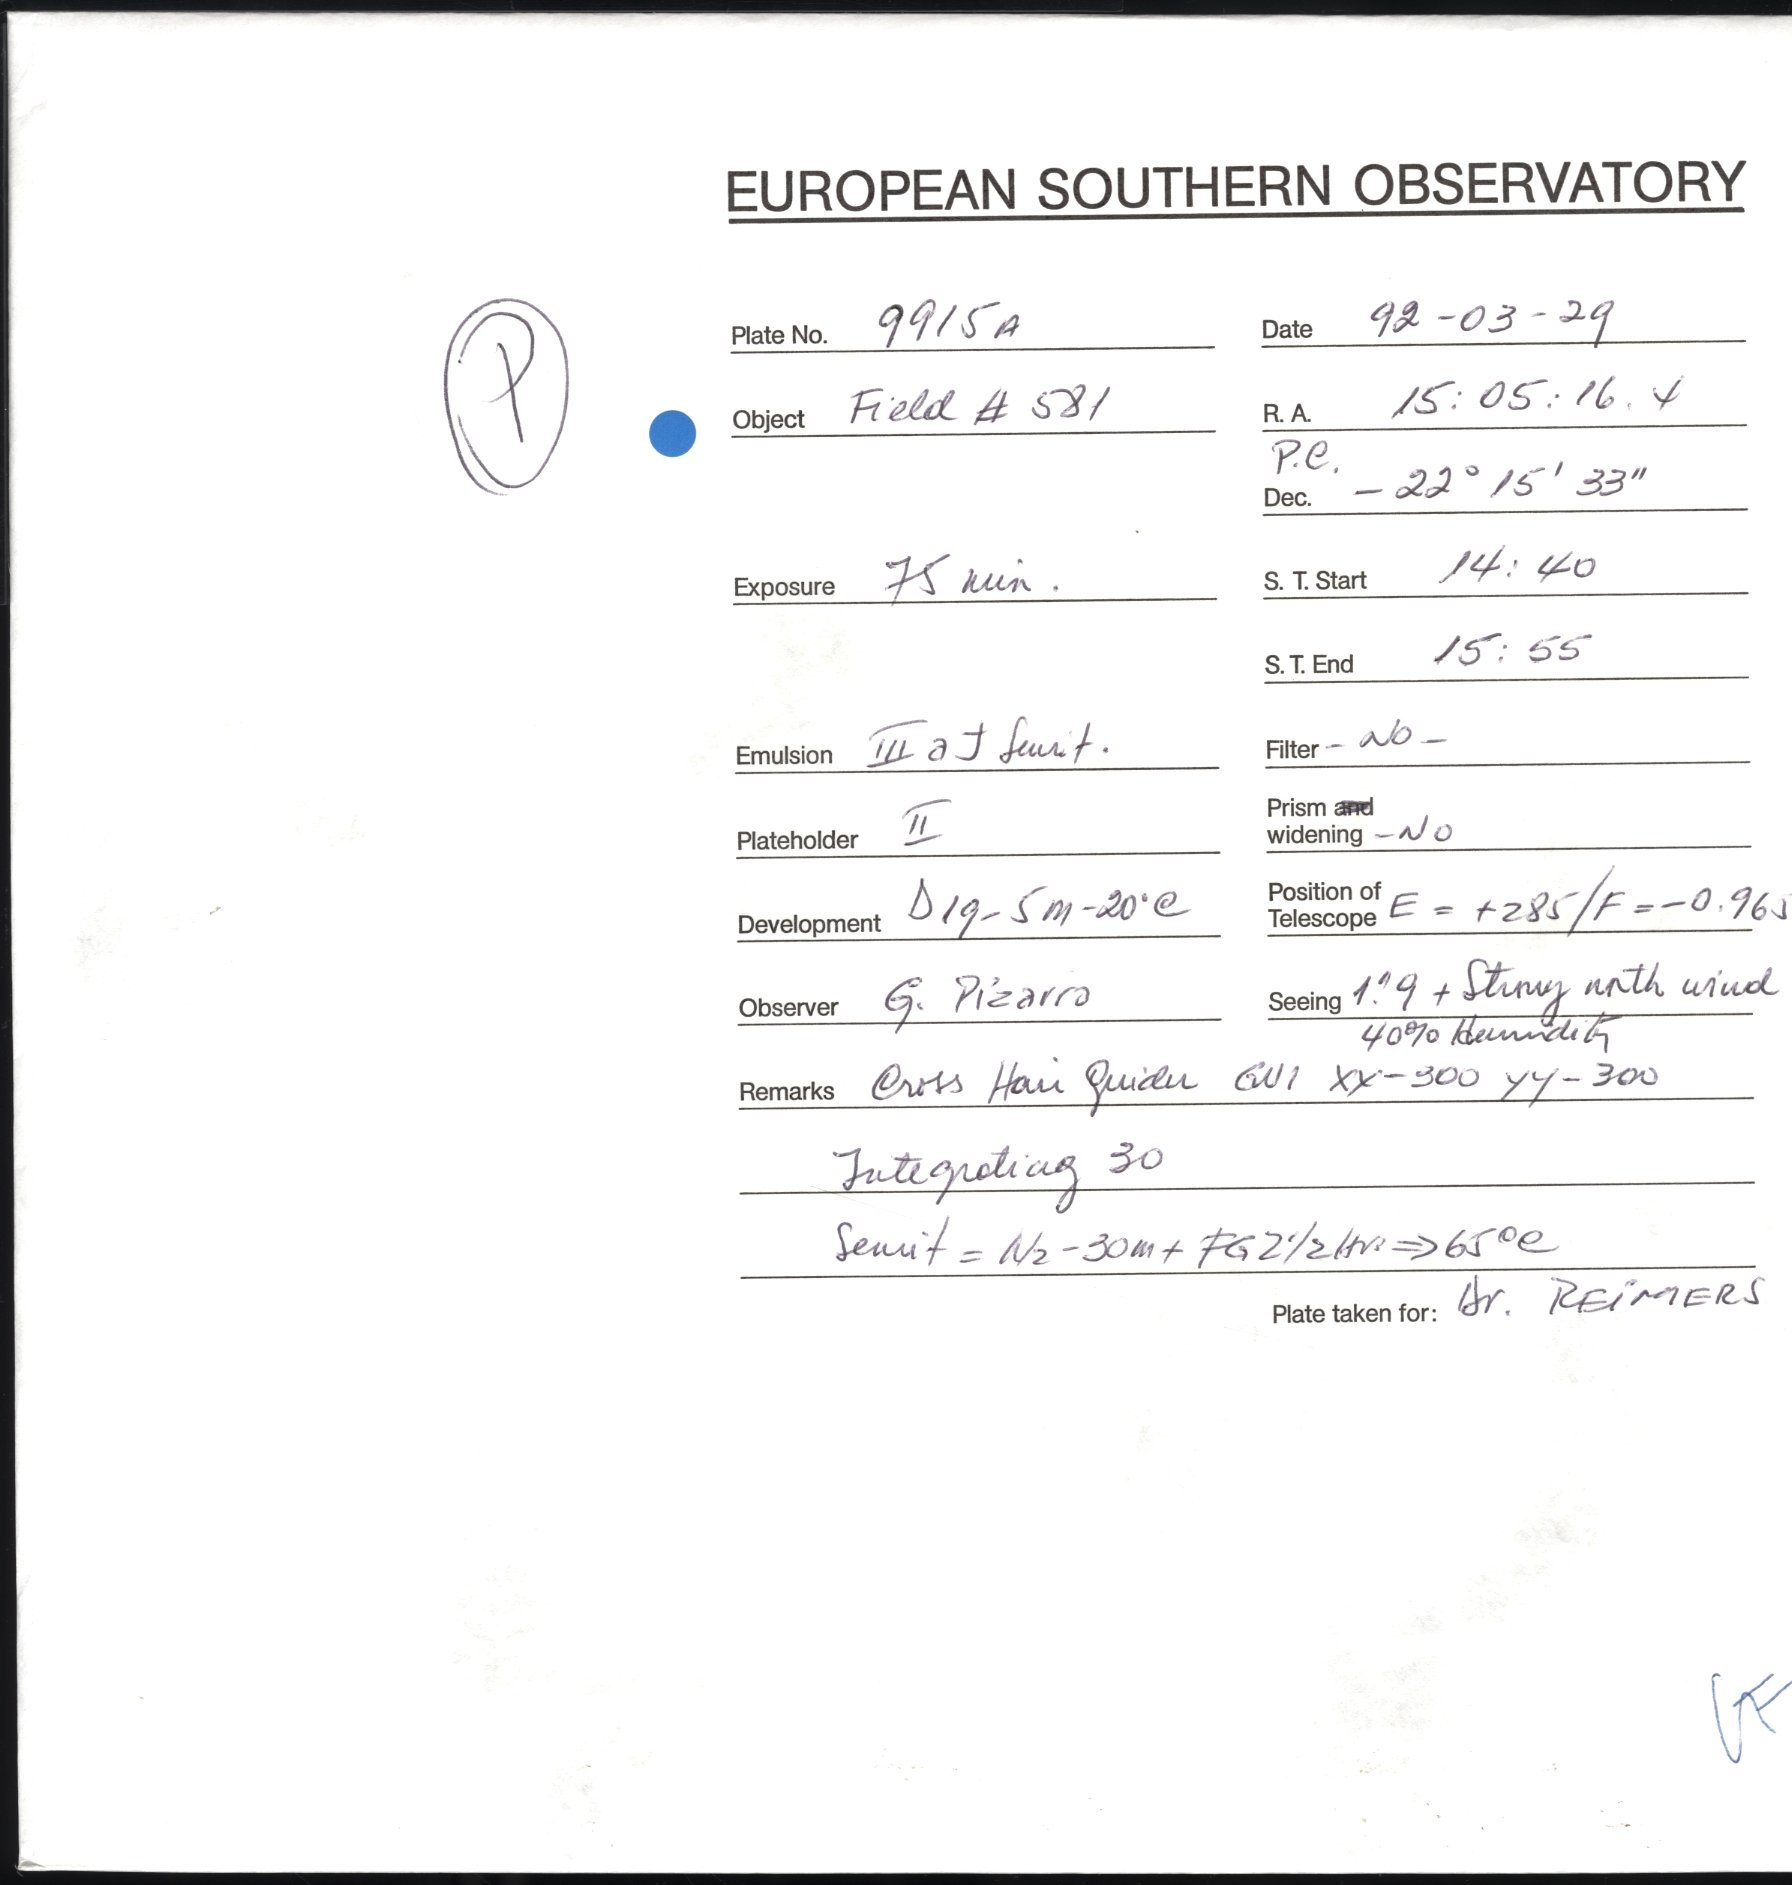 EUROPEAN SOUTHERN OBSERVATORY
P
Plate No. 9915A
Date 92-03-29
Object Field # 581
R. A. 15: 05: 16. 4
P.C.
Dec. - 22° 15' 33"
Exposure 75 min.
S. T. Start 14: 40
S. T. End 15: 55
Emulsion III a J Sensit.
Filter - No -
Plateholder II
Prism and
widening - No
Development D19 - 5m - 20°C
Position of
Telescope E = +285 / F = -0.965
Observer G. Pizarro
Seeing 1."9 + Strong north wind
40% Humidity
Remarks Cross Hair Guider GU1 XX-300 YY-300
Integrating 30
Sensit = N2 - 30m + FG 2 1/2 Hrs => 65°C
Plate taken for: Dr. REIMERS